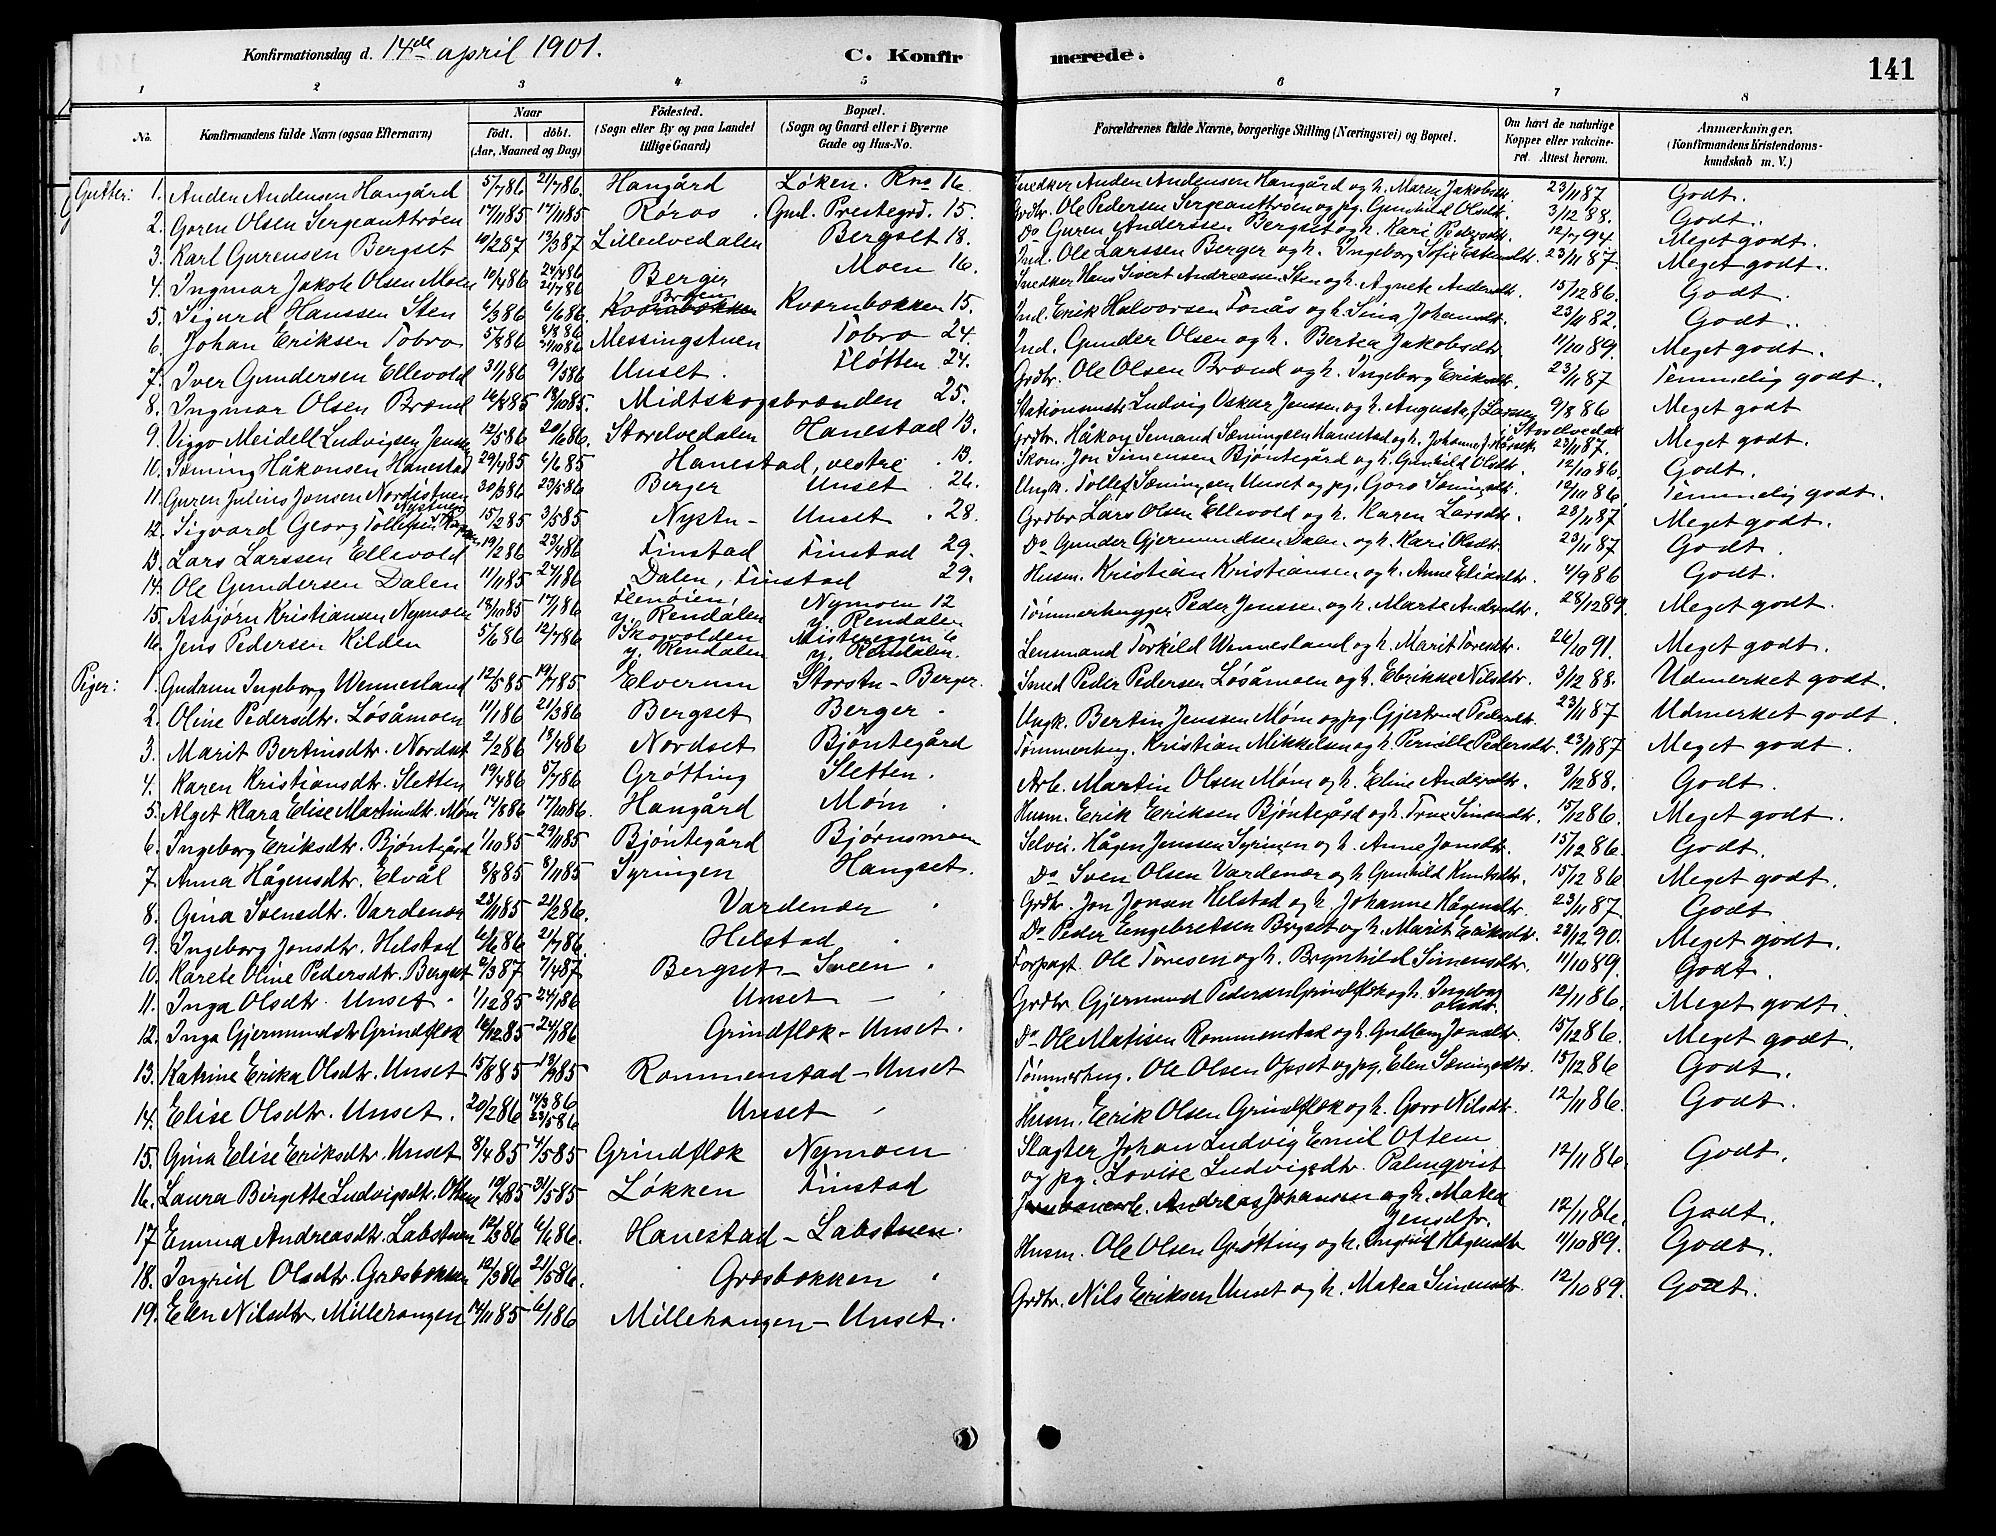 Konfirmationsdag d. 14de april 1901.
C. Konfirmerede.
141
1 2 3 4 5 6 7 8
No.
Konfirmandens fulde Navn (ogsaa Efternavn)
Naar
født. døbt.
(Aar, Maaned og Dag)
Födested.
(Sogn eller By og paa Landet tillige Gaard)
Bopæl.
(Sogn og Gaard eller i Byerne Gade og Hus-No.
Forældrenes fulde Navne, borgerlige Stilling (Næringsvei) og Bopæl.
Om havt de naturlige Kopper eller vakcineret. Attest herom.
Anmærkninger.
(Konfirmandens Kristendomskundskab m. V.)
Gutter:
1. Anden Andensen Hangård 5/7 86 21/7 86. Hangård Løken. Rno 16. Snedker Anden Andensen Hangård og h. Maren Jakobsdt. 23/11 87 Godt.
2. Goren Olsen Sergeanttrøen 17/11 85 17/11 85 Røros Gml. Prestegrd. 15. Grdbr. Ole Pedersen Sergeanttrøen og pg. Gunhild Olsdt. 3/12 88. Godt.
3. Karl Gurensen Bergset 10/2 87 13/3 87 Lilleelvedalen Bergset 18. Do Guren Andersen Bergset og h. Kari Pedersdt. 12/7 94 Meget godt.
4. Ingmar Jakob Olsen Moen 10/4 86 24/4 86 21/7 86 Berger Moen 16. Ind. Ole Larssen Berger og h. Ingeborg Sofie Estensdtr. 23/11 87. Meget godt.
5. Sigurd Hanssen Sten 6/3 86 6/6 86. Kværnbækken Kværnbækken 15. Snedker Hans Sivert Andreassen Sten og h. Agnete Andersdt. 15/12 86. Godt.
6. Johan Eriksen Tobro 5/8 86 8/8 86 31/10 86 Messingstuen Tobro 24. Ind. Erik Halvorsen Tonås og h. Sina Johansdt. 23/11 82. Godt.
7. Iver Gundersen Ellevold 31/1 86 9/5 86 Unset. Fløtten 24. Ind. Gunder Olsen og h. Bertea Jakobsdtr. 11/10 89. Meget godt.
8. Ingmar Olsen Brænd 16/8 85 18/10 85. Midtskogsbrænden 25. Grdbr. Ole Olsen Brænd og h. Ingeborg Eriksdtr. 23/11 87 Temmelig godt.
9. Viggo Meidell Ludvigsen Jenssen 12/5 86 20/6 86. Storelvedalen Hanestad 13. Stationsmstr. Ludvig Oskar Jenssen og h. Augusta f. Larsen i Storelvedal 9/8 86 Meget godt
10. Sæming Håkonsen Hanestad 29/4 85 6/6 85 Hanestad, vestre 13. Grdbr. Håkon Semand Sæmingsen Hanestad og h. Johanne 23/11 87. Meget godt.
11. Guren Julius Jonsen Nordistuen 30/3 86 23/5 86 Berger Unset 26. Skom. Jon Simensen Bjøntegård og h. Gunhild Olsdt. 12/10 86. Godt.
12. Sigvard Georg Tollefsen Nystuen 15/2 85 3/5 85 Nystu- Unset 28. Ungk. Tollef Sæmingsen Unset og pg. Goro Sæmingsdt. 12/10 86. Temmelig godt.
13. Lars Larssen Ellevold 19/2 86 23/4 86 Finstad Finstad 29. Grdbr Lars Olsen Ellevold og h. Karen Larsdtr. 23/11 87 Meget godt.
14. Ole Gundersen Dalen 11/11 85 24/1 86 Dalen, Finstad 29. Do Gunder Gjermundsen Dalen og h. Kari Olsdtr. 23/11 87 Godt.
15. Asbjørn Kristiansen Nymoen 18/10 85 17/1 86 y. Rendalen Nymoen 12 y. Rendalen Husm. Kristian Kristiansen og h. Anne Eliasdtr. 4/9 86 Godt.
16. Jens Pedersen Kilden 5/6 86 12/7 86 Skogvolden y. Rendalen Mistereggen 6 y. Rendalen. Tømmerhugger Peder Jenssen og h. Marte Andersdtr. 28/12 89. Meget godt.
Piger:
1. Gudrun Ingeborg Wennesland 12/5 85 19/7 85. Elverum Storstu-Berger. Lensmand Torkild Wennesland og h. Marit Toresdtr. 26/10 91. Meget godt.
2. Oline Pedersdtr. Løsåmoen 11/1 86 21/3 86 Bergset Berger. Smed Peder Pedersen Løsåmoen og h. Ebrikke Nilsdtr. 3/12 88. Udmerket godt.
3. Marit Bertinsdtr. Nordset 2/2 86 18/4 86 Nordset Bjøntegård Ungk. Bertin Jenssen Møm og pg. Gjertrud Pedersdtr. 23/11 87 Udmerket godt.
4. Karen Kristiansdtr. Sletten 19/4 86 5/7 86 Grøtting Sletten. Tømmerhug. Kristian Mikkelsen og h. Pernille Pedersdtr. 23/11 87 Meget godt.
5. Alget Klara Elise Martinsdtr. Møm 14/8 86 17/10 86. Hangård Møm. Arb. Martin Olsen Møm og h. Eline Andersdtr. 3/12 88. Godt.
6. Ingeborg Eriksdtr. Bjøntegård 1/10 85 29/11 85 Bjøntegård Bjørnsmoen Husm. Erik Eriksen Bjøntegård og h. True Simensdtr. 15/12 86. Meget godt.
7. Anna Hågensdtr. Elvål 8/8 85 8/11 85 Syringen Hangset. Selvei. Hågen Jenssen Syringen og h. Anne Jonsdtr. 15/12 86. Godt.
8. Gina Svensdtr. Vardenær 23/11 85 21/2 86. Vardenær Do Sven Olsen Vardenær og h. Gunhild Knutsdtr. 15/12 86 Meget godt.
9. Ingeborg Jonsdtr. Helstad 6/6 86 21/7 86. Helstad Grdbr. Jon Jonsen Helstad og h. Johanne Hågensdtr. 23/11 87. Godt
10. Karete Oline Pedersdtr. Bergset 2/3 87 7/4 87 Bergset - Sveen. Do Peder Engebretsen Bergset og h. Marit Eriksdtr. 28/12 90. Meget godt.
11. Inga Olsdtr. Unset 1/12 85 24/1 86 Unset Forpagt. Ole Toresen og h. Brynhild Simensdtr. 11/10 89. Godt.
12. Inga Gjermundsdtr Grindflæk 16/12 85 24/1 86 Grindflæk-Unset. Grdbr Gjermund Pedersen Grindflæk og h. Ingeborg Olsdt. 12/11 86. Meget godt.
13. Katrine Erika Olsdtr. Unset 15/8 85 13/9 85 Rommenstad-Unset Do Ole Matisen Rommenstad og h. Gudlaug Jonsdtr. 15/12 86. Meget godt.
14. Elise Olsdtr. Unset. 20/2 86 14/3 86 23/5 86 Unset Tømmerhug. Ole Olsen Opset og pg. Elen Sæmingsdtr. 15/12 86 Godt.
15. Gina Elise Eriksdtr. Unset 8/4 85 4/5 85 Grindflæk Nymoen Husm. Erik Olsen Grindflæk og h. Goro Nilsdtr. 12/11 86. Godt.
16. Laura Birgette Ludvigsdtr. Ottem 19/4 85 31/5 85 Løkken Finstad Slagter Johan Ludvig Emil Ottem og pg. Lovise Ludvigsdtr. Palmqvist 12/11 86. Godt.
17 Emma Andreasdtr. Labstuen 12/3 86 6/6 86. Hanestad - Labstuen. Jernbanearb. Andreas Johansen og h. Matea Jensdtr. 12/11 86. Godt.
18. Ingrid Olsdtr. Græsbækken 12/3 86 21/5 86. Græsbækken Husm. Ole Olsen Grøtting og h. Ingrid Hågensdtr 11/10 89. Godt.
19. Elen Nilsdtr. Millehaugen 14/11 85 6/1 86 Millehaugen-Unset. Grdbr. Nils Eriksen Unset og h. Matea Simensdtr. 12/10 89. Godt.